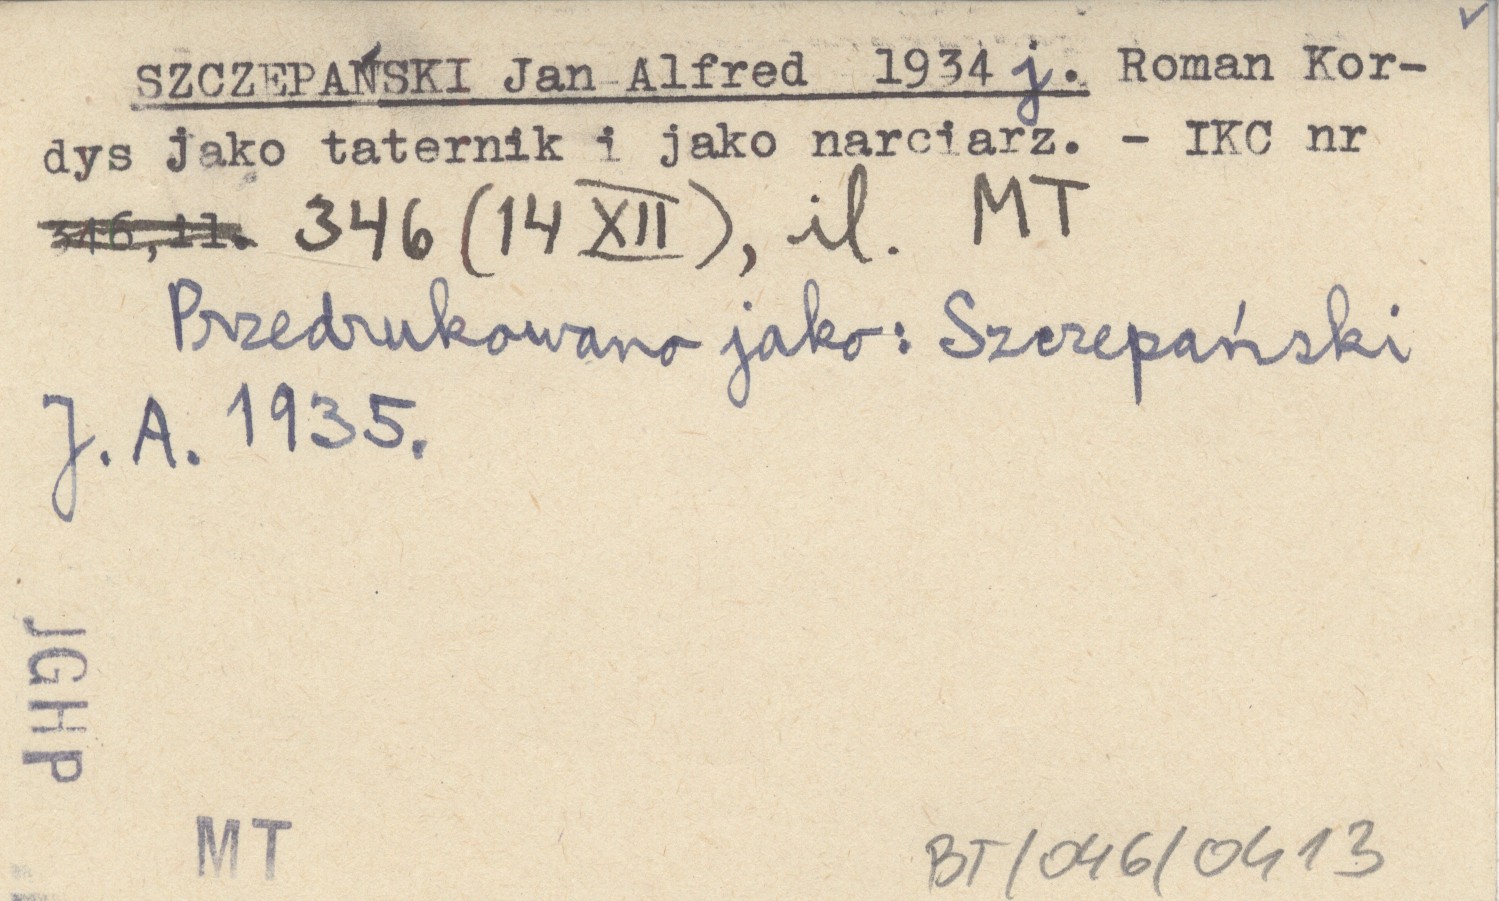 SZCZEPAŃSKI Jan Alfred 1934 j. Roman Kor-
dys jako taternik i jako narciarz. - IKC nr
346, il. 346 (14 XII), il. MT
Przedrukowano jako: Szczepański
J. A. 1935.
JGHP
MT
BT/046/0413